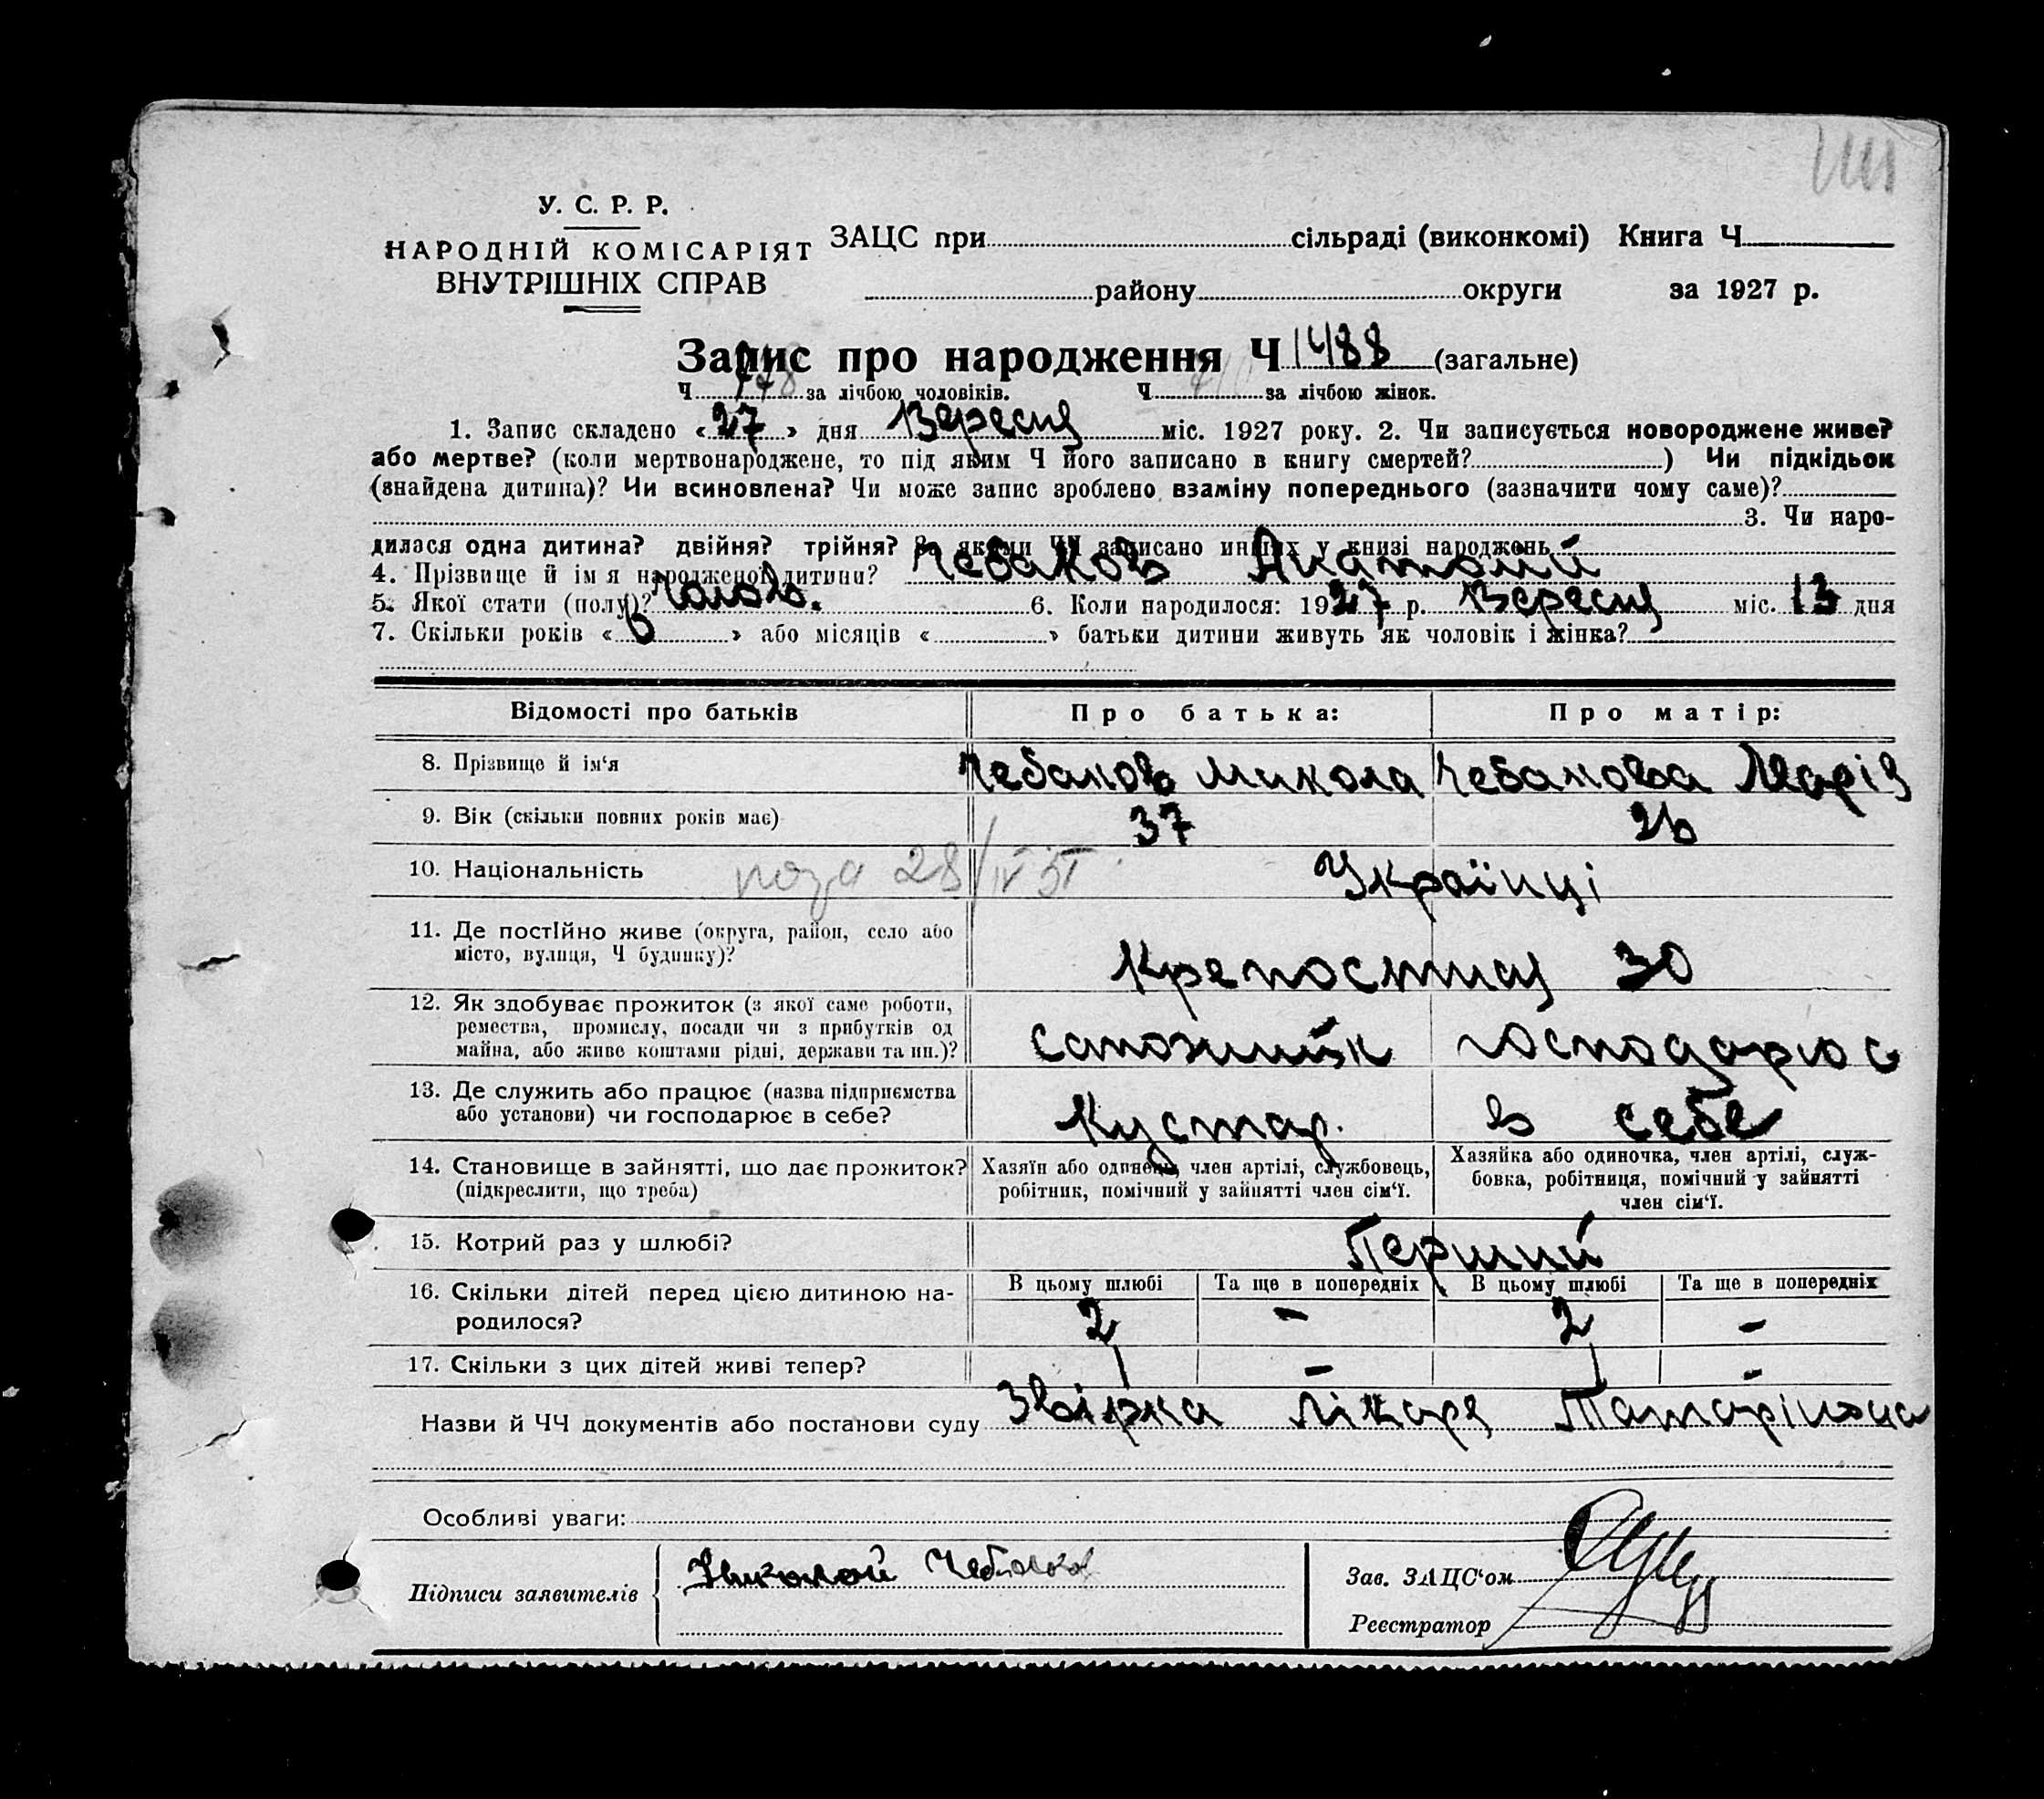 У. С. Р. Р.
НАРОДНІЙ КОМІСАРІЯТ
ВНУТРІШНІХ СПРАВ
ЗАЦС при сільраді (виконкомі) Книга Ч
району округи за 1927 р.
Запис про народження Ч 1488 (загальне)
Ч 778 за лічбою чоловіків. Ч за лічбою жінок.
1. Запис складено « 27 » дня Вересня міс. 1927 року. 2. Чи записується новороджене живе?
або мертве? (коли мертвонароджене, то під яким Ч його записано в книгу смертей? ) Чи підкідьок
(знайдена дитина)? Чи всиновлена? Чи може запис зроблено взаміну попереднього (зазначити чому саме)?
3. Чи наро-
дилася одна дитина? двійня? трійня? За якими ЧЧ записано инших у книзі народжень
4. Прізвище й ім я народженої дитини? Чебаков Анатолій
5. Якої стати (полу)? Чолов. 6. Коли народилося: 1927 р. Вересня міс. 13 дня
7. Скільки років « 6 » або місяців « » батьки дитини живуть як чоловік і жінка?
Відомості про батьків Про батька: Про матір:
8. Прізвище й ім‘я Чебаков Микола Чебакова Марія
9. Вік (скільки повних років має) 37 26
10. Національність 28/IV 51 Українці
11. Де постійно живе (округа, район, село або
місто, вулиця, Ч будинку)? Крепостная 30
12. Як здобуває прожиток (з якої саме роботи,
ремества, промислу, посади чи з прибутків од
майна, або живе коштами рідні, держави та ин.)? сапожнийк господарює
13. Де служить або працює (назва підприємства
або установи) чи господарює в себе? Кустар. в себе
14. Становище в зайнятті, що дає прожиток?
(підкреслити, що треба)
Хазяїн або одинець, член артілі, службовець,
робітник, помічний у зайнятті член сім‘ї.
Хазяйка або одиночка, член артілі, служ-
бовка, робітниця, помічний у зайнятті
член сім‘ї.
15. Котрий раз у шлюбі? Перший
16. Скільки дітей перед цією дитиною на-
родилося?
В цьому шлюбі Та ще в попередніх В цьому шлюбі Та ще в попередніх
2 - 2 -
17. Скільки з цих дітей живі тепер? 1 - 1 -
Назви й ЧЧ документів або постанови суду Звірка лікаря Татарінова
Особливі уваги:
Підписи заявителів Николай Чебаков
Зав. ЗАЦС‘ом
Реєстратор